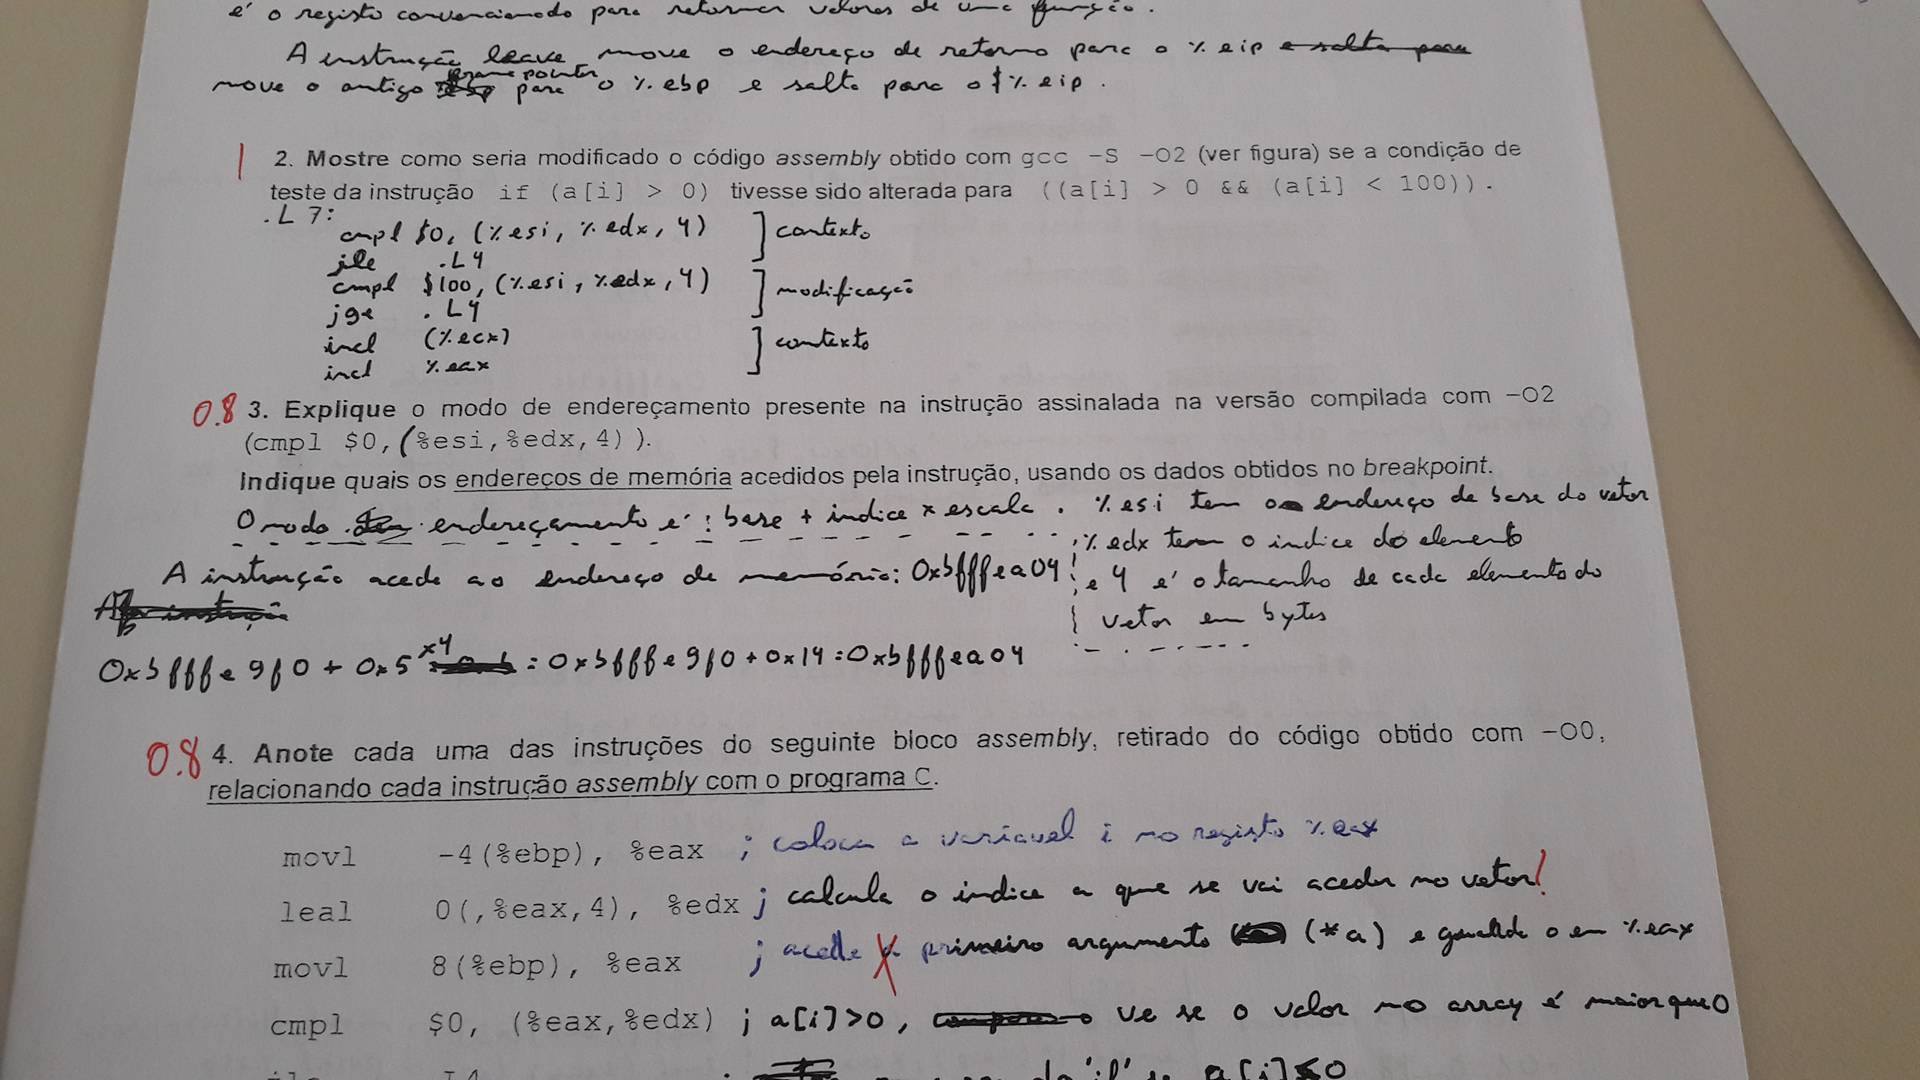 é o registo convencionado para retornar valores de uma função.
A instrução leave move o endereço de retorno para o %eip e salta para
move o antigo frame pointer para o %ebp e salta para o %eip.
1 2. Mostre como seria modificado o código assembly obtido com gcc -S -O2 (ver figura) se a condição de
teste da instrução if (a[i] > 0) tivesse sido alterada para ((a[i] > 0 && (a[i] < 100)).
.L7:
cmpl $0, (%esi, %edx, 4) ] contexto
jle .L4
cmpl $100, (%esi, %edx, 4) ] modificação
jge .L4
incl (%ecx) ] contexto
incl %eax
0.8 3. Explique o modo de endereçamento presente na instrução assinalada na versão compilada com -O2
(cmpl $0,(%esi,%edx,4)).
Indique quais os endereços de memória acedidos pela instrução, usando os dados obtidos no breakpoint.
O modo endereçamento é: base + indice x escala. %esi tem o endereço de base do vetor
, %edx tem o indice do elemento
A instrução acede ao endereço de memória: 0xbfffea04 e 4 é o tamanho de cada elemento do
vetor em bytes
0xbfffe9f0 + 0x5 x4 = 0xbfffe9f0 + 0x14 = 0xbfffea04
0.8 4. Anote cada uma das instruções do seguinte bloco assembly, retirado do código obtido com -O0,
relacionando cada instrução assembly com o programa C.
movl -4(%ebp), %eax ; coloca a variavel i no registo %eax
leal 0(,%eax,4), %edx ; calcula o indice a que se vai aceder no vetor!
movl 8(%ebp), %eax ; acede primeiro argumento (*a) e guarda o em %eax
cmpl $0, (%eax,%edx) ; a[i]>0, ve se o valor no array é maior que 0
'if' se a[i]≤0